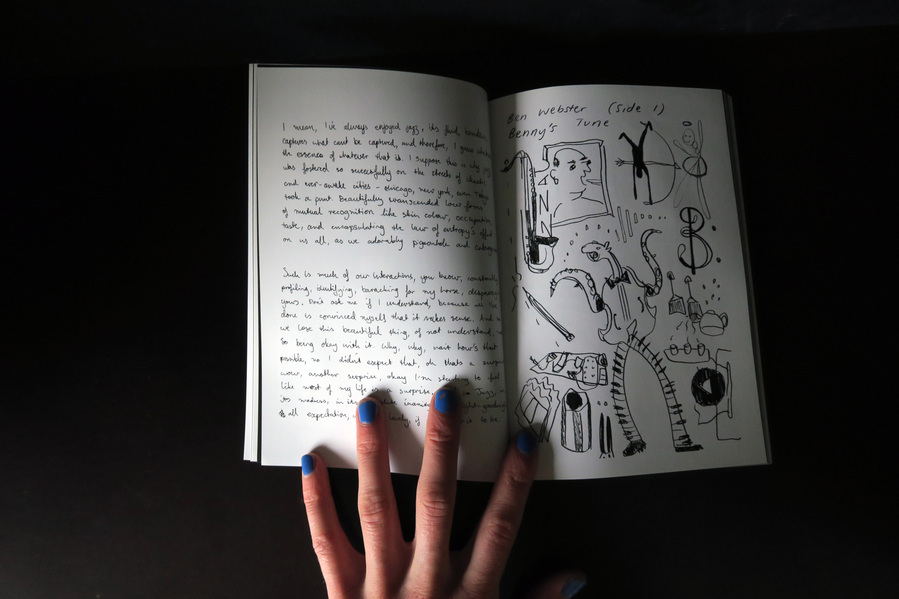 I mean, I've always enjoyed jazz, its fluid
captures what can't be captured, and therefore, I guess
the essence of whatever that is. I suppose this is why jazz
was fostered so successfully on the streets of
and ever-awake cities - chicago, new york, even Tokyo
took a punt. Beautifully transcended low forms
of mutual recognition like skin colour, occupation
taste, and encapsulating the law of entropy's effect
on us all, as we adorably pigeonhole and
Such is much of our interactions, you know, constantly
profiling, identifying, for my horse,
yours. Don't ask me if I understand, because all I've
done is convinced myself that it makes sense. And
we lose this beautiful thing, of not understanding,
so being okay with it. Why, why, wait how's that
possible, no I didn't expect that, oh thats a
wow, another surprise, okay I'm starting to
like most of my life is a surprise.
its madness, in its
& all expectation, if to be.
Ben Webster (Side 1)
Benny's Tune